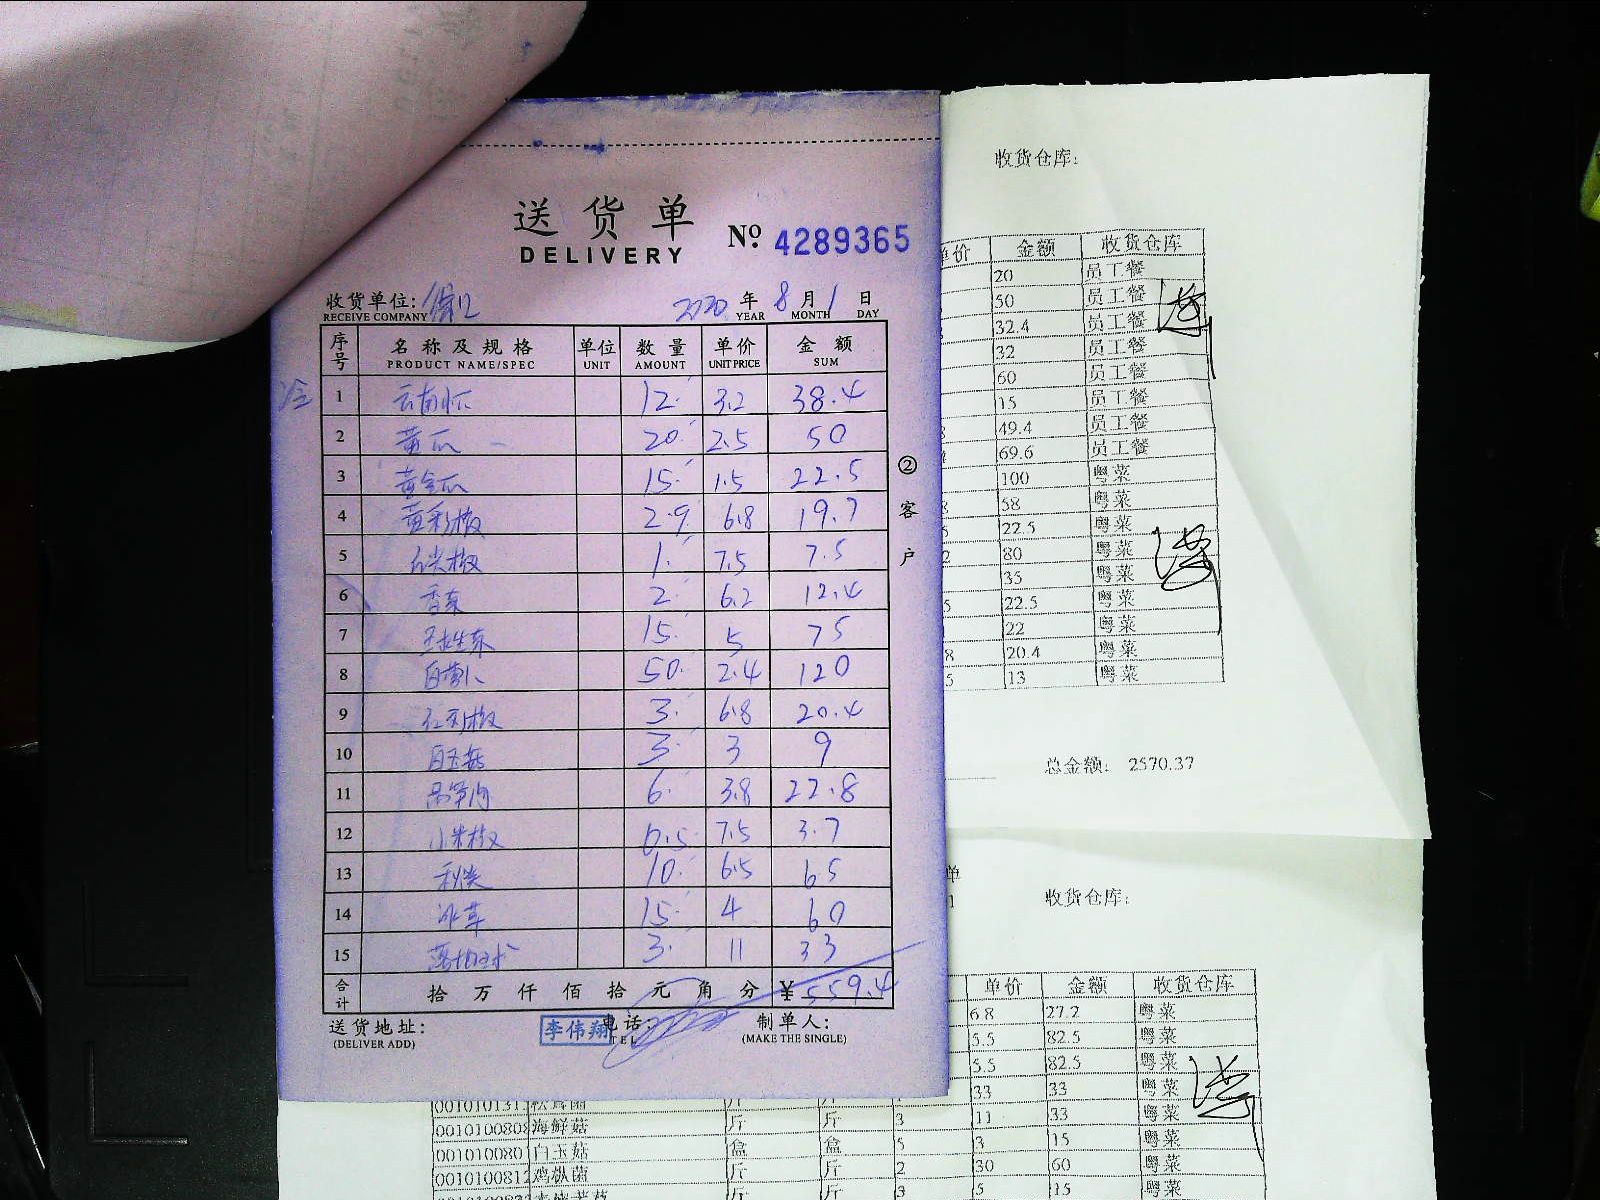 送货单
DELIVERY
№ 4289365
收货单位:
RECEIVE COMPANY
2020 年 8 月 1 日
YEAR MONTH DAY
序号 名称及规格 单位 数量 单价 金额
PRODUCT NAME/SPEC UNIT AMOUNT UNIT PRICE SUM
冷
1 12. 3.2 38.4
2 黄瓜 20. 2.5 50
3 黄金瓜 15. 1.5 22.5
4 黄彩椒 2.9 6.8 19.7
5 1. 7.5 7.5
6 香菜 2. 6.2 12.4
7 15. 5 75
8 50. 2.4 120
9 3. 6.8 20.4
10 白玉菇 3. 3 9
11 6. 3.8 22.8
12 小米椒 0.5 7.5 3.7
13 秋葵 10. 6.5 65
14 冰草 15. 4 60
15 3. 11 33
合计 拾 万 仟 佰 拾 元 角 分 ¥ 559.4
送货地址:
(DELIVER ADD)
李伟翔
电话:
TEL
制单人:
(MAKE THE SINGLE)
②客户
收货仓库:
单价 金额 收货仓库
20 员工餐
50 员工餐
32.4 员工餐
32 员工餐
60 员工餐
15 员工餐
49.4 员工餐
69.6 员工餐
100 粤菜
58 粤菜
22.5 粤菜
80 粤菜
35 粤菜
22.5 粤菜
22 粤菜
20.4 粤菜
13 粤菜
总金额: 2570.37
单
收货仓库:
单价 金额 收货仓库
6.8 27.2 粤菜
5.5 82.5 粤菜
5.5 82.5 粤菜
33 33 粤菜
斤 斤 3 11 33 粤菜
001010080 海鲜菇
001010080 白玉菇 盒 盒 5 3 15 粤菜
0010100812 鸡枞菌 斤 斤 2 30 60 粤菜
斤 斤 3 5 15 粤菜